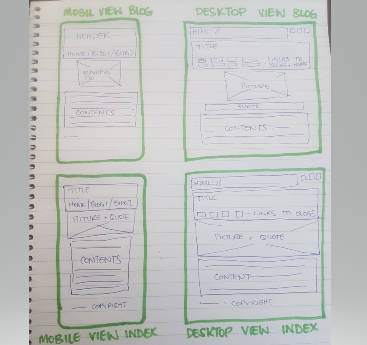 MOBIL VIEW BLOG
HEADER
HOME/BLOG1/BLOG2
CONTENTS
DESKTOP VIEW BLOG
TITLE
LINKS TO
PICTURE
QUOTE
CONTENTS
TITLE
HOME/BLOG1/BLOG2
PICTURE + QUOTE
CONTENTS
COPYRIGHT
MOBILE VIEW INDEX
TITLE
- LINKS TO BLOGS
PICTURE + QUOTE
CONTENT
COPYRIGHT
DESKTOP VIEW INDEX